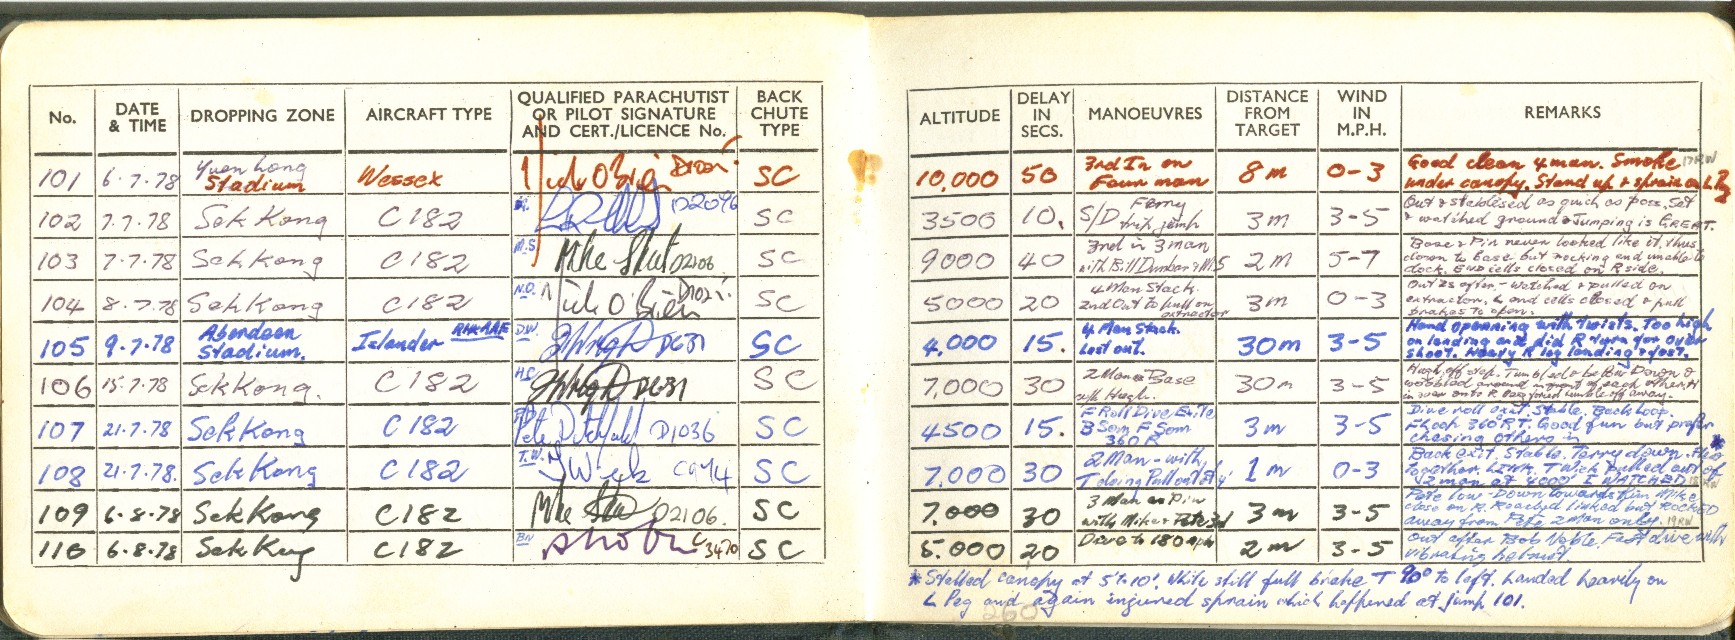 No.
DATE & TIME
DROPPING ZONE
AIRCRAFT TYPE
QUALIFIED PARACHUTIST
OR PILOT SIGNATURE
AND CERT./LICENCE No.
BACK CHUTE TYPE
ALTITUDE
DELAY IN SECS.
MANOEUVRES
DISTANCE FROM TARGET
WIND IN M.P.H.
REMARKS
101 6.7.78 Yuen Long Stadium Wessex SC 10,000 50 3rd In on Four man 8m 0-3 Good clean 4 man. Smoke under canopy. Stand up & sprain on L
102 7.7.78 Sek Kong C182 D2096 SC 3500 10. S/D 3m 3-5 Out & stabilised as quick as poss. Sat & watched ground & Jumping is GREAT.
103 7.7.78 Sek Kong C182 M.S. 02106 SC 9000 40 3rd in 3 man with Bill Dunbar & MS 2m 5-7 Base & Pin never looked like it, thus down to base but rocking and unable to dock. End cells closed on R side.
104 8.7.78 Sek Kong C182 N.O. SC 5000 20 4 Man Stack. 2nd Out to pull on extractor 3m 0-3 Out 2s after - watched & pulled on extractor, L end cells closed & pull brakes to open.
105 9.7.78 Aberdeen Stadium. Islander RHKAAF D.W. D631 SC 4,000 15. 4 Man Stack. Last out. 30m 3-5 Hard opening with twists. Too high on landing and did R turn for over shoot. Heavy R leg landing
106 15.7.78 Sek Kong. C182 D631 SC 7,000 30 2 Man Base with Hugh. 30m 3-5 Hugh off step. Tumbled
107 21.7.78 Sek Kong C182 D1036 SC 4500 15. F Roll Dive Exit B Som F Som 360 R 3m 3-5 Dive roll exit. Stable. Back loop. F Loop 360 RT. Good fun but prefer chasing others in
108 21.7.78. Sek Kong C182 T.W. SC 7,000 30 2 Man - with T doing Pull out 1m 0-3 Back exit. Stable. Terry down. together. LINK. T Wick pulled out of 2 man at 4000' I WATCHED
109 6.8.78 Sek Kong C182 02106. SC 7,000 30 3 Man as Pin with Mike & Pete 3rd 3m 3-5 Pete low - Down towards him Mike close on R. Reached linked but ROCKED away from Pete 2 Man only. 19RW
110 6.8.78 Sek Kong C182 BN C3470 SC 5.000 20 Dive to 180 mph 2m 3-5 Out after Bob Noble. Fast dive with vibrating helmet
* Stalled canopy at 5'-10'. While still full brake T 90° to left. Landed heavily on
L Peg and again injured sprain which happened at jump 101.